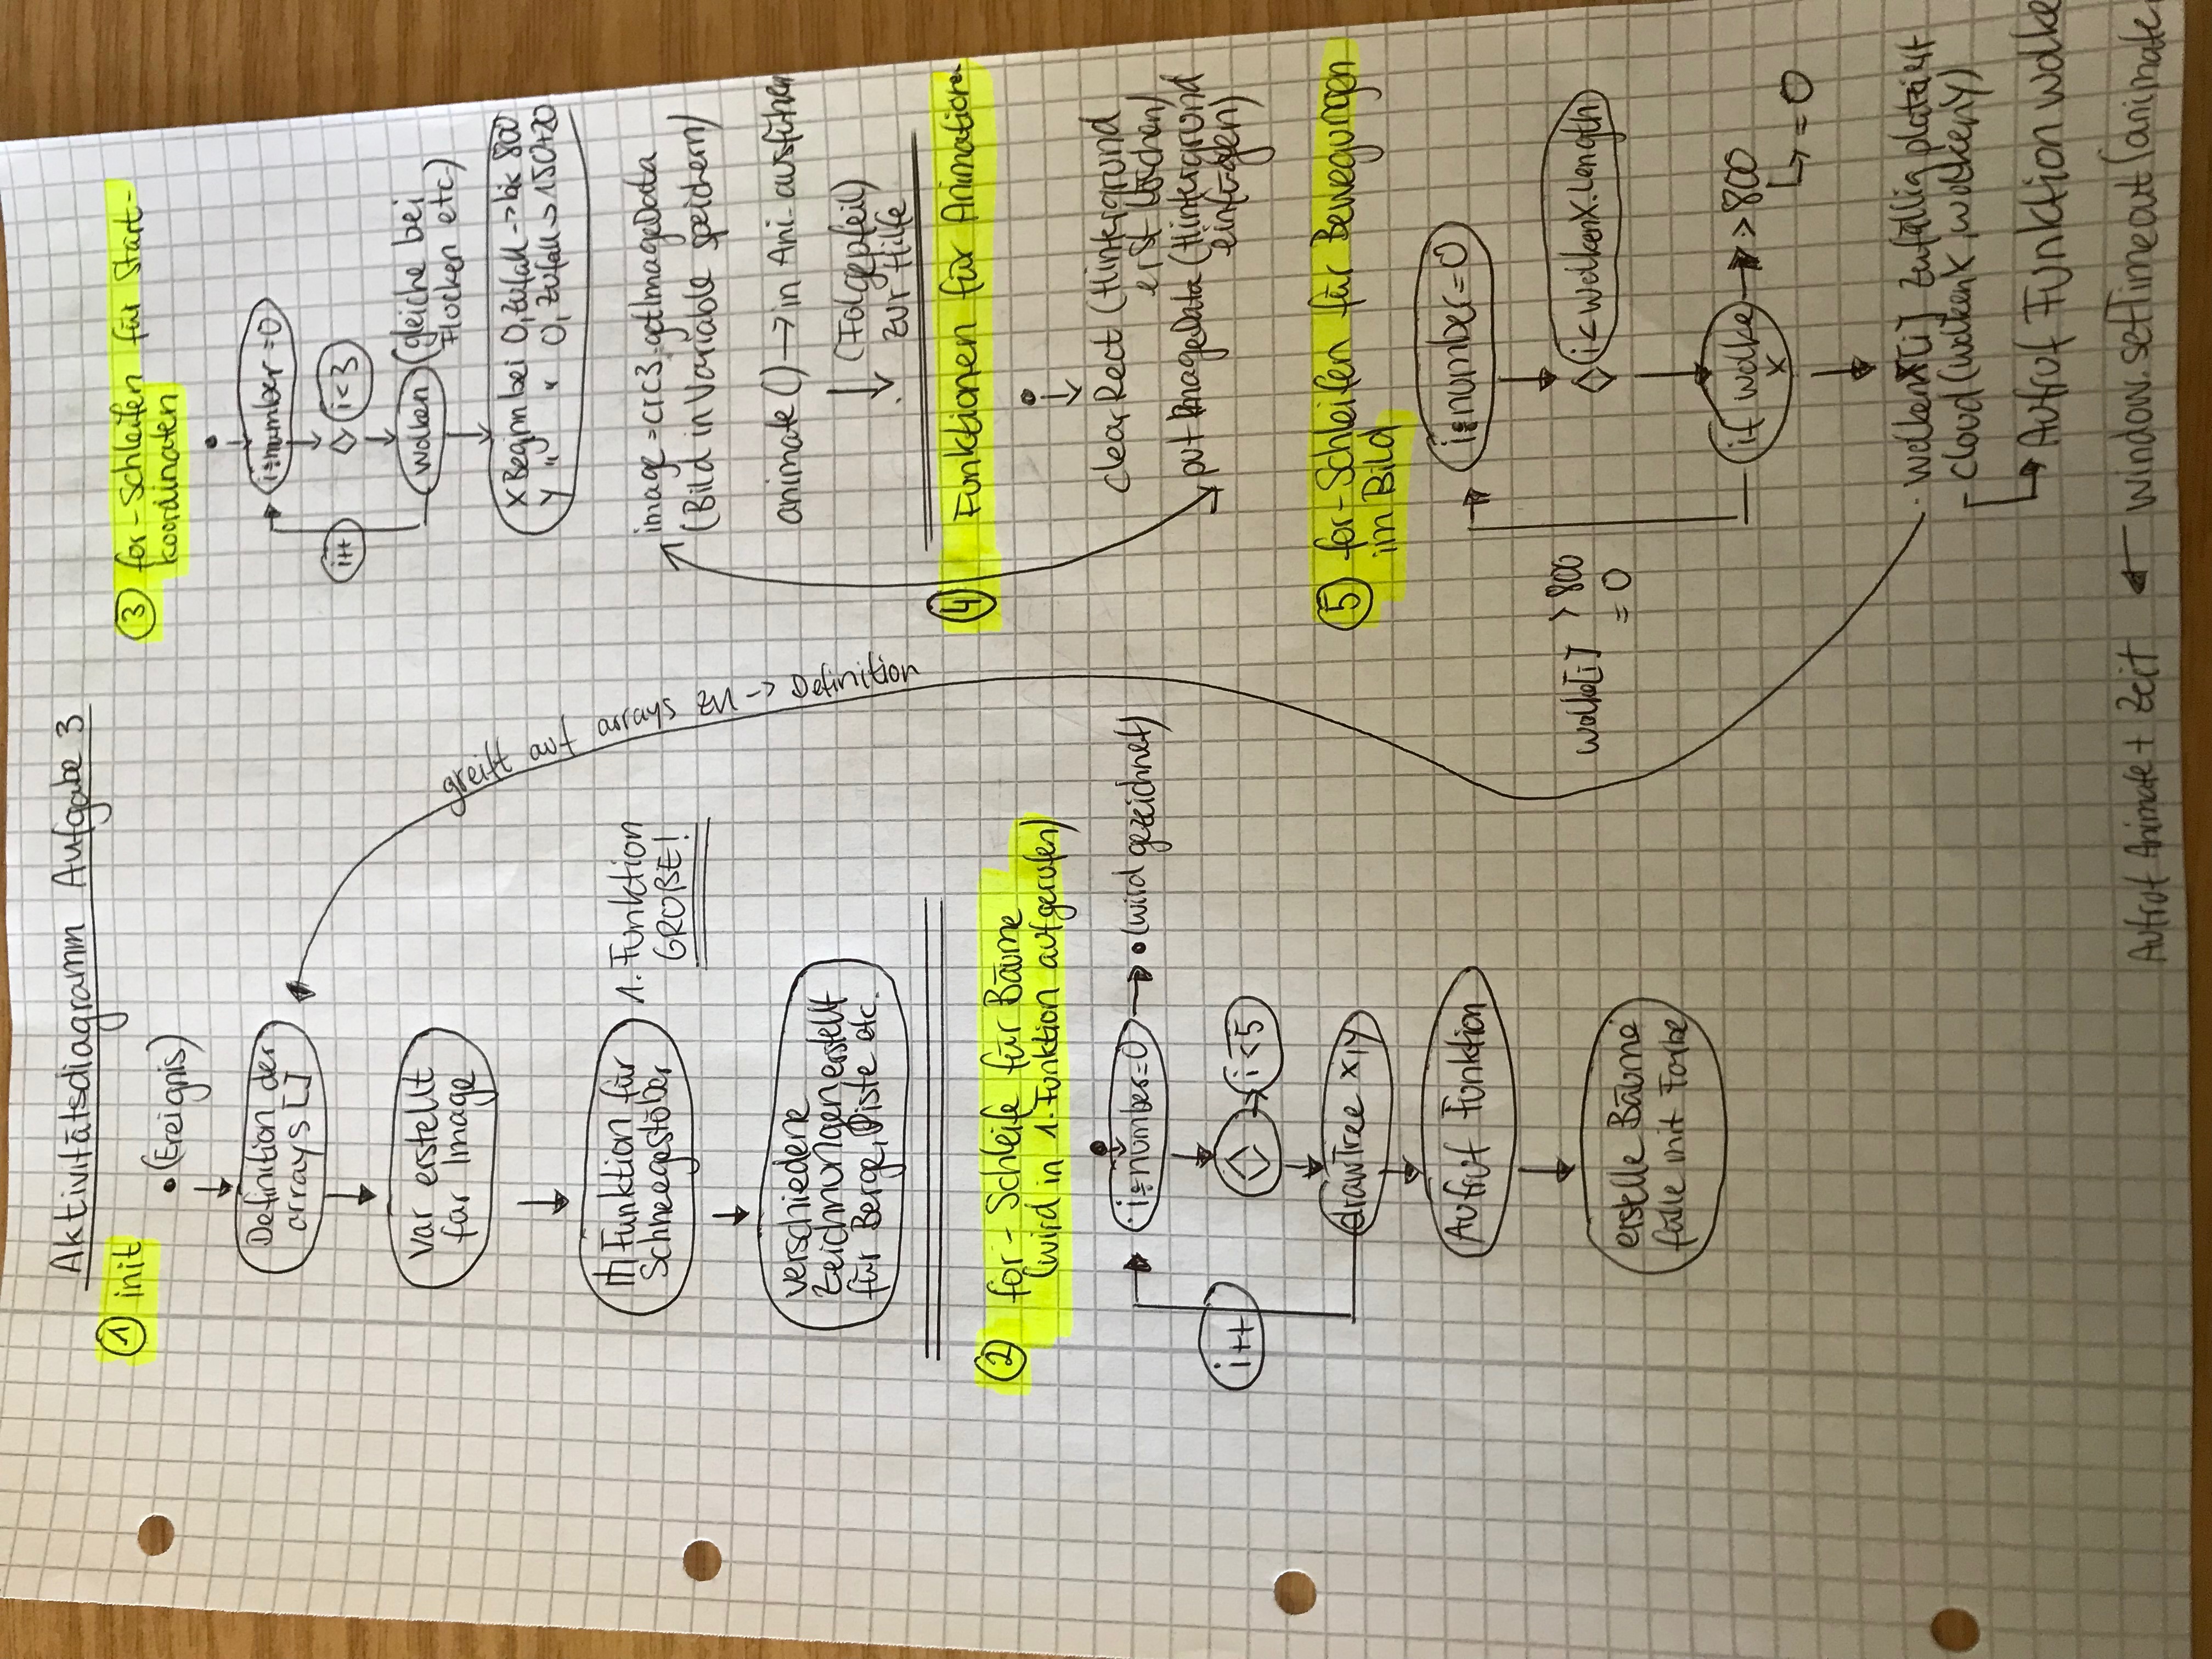 Aktivitätsdiagramm Aufgabe 3
① init
(Ereignis)
Definition der
arrays []
var erstellt
für Image
Funktion für
Schneegestöber
1. Funktion
GROßE!
verschiedene
Zeichnungen erstellt
für Berge, Piste etc.
② for-Schleife für Bäume
(wird in 1. Funktion aufgerufen)
i:number=0
(wird gezeichnet)
i++
i<5
drawTree x,y
Aufruf Funktion
erstelle Bäume
fülle mit Farbe
greift auf arrays zu -> Definition
③ for-Schleifen für Start-
koordinaten
i:number=0
i++
i<3
Wolken
(gleiche bei
Flocken etc.)
x Beginn bei 0, Zufall -> bis 800
y " " 0, Zufall -> 150+20
image = crc3.getImageData
(Bild in Variable speichern)
animate () -> in Ani. ausführen
(Folgepfeil)
zur Hilfe
④ Funktionen für Animation
clearRect (Hintergrund
erst löschen)
put ImageData (Hintergrund
einfügen)
⑤ for-Schleifen für Bewegungen
im Bild
i:number=0
i<wolkenX.length
wolke[i] >800
=0
if wolke
x
>800
=0
wolkenX[i] zufällig platziert
cloud(wolkenX, wolkenY)
Aufruf Funktion Wolke
window.setTimeout(animate,
Aufruf Animate + Zeit